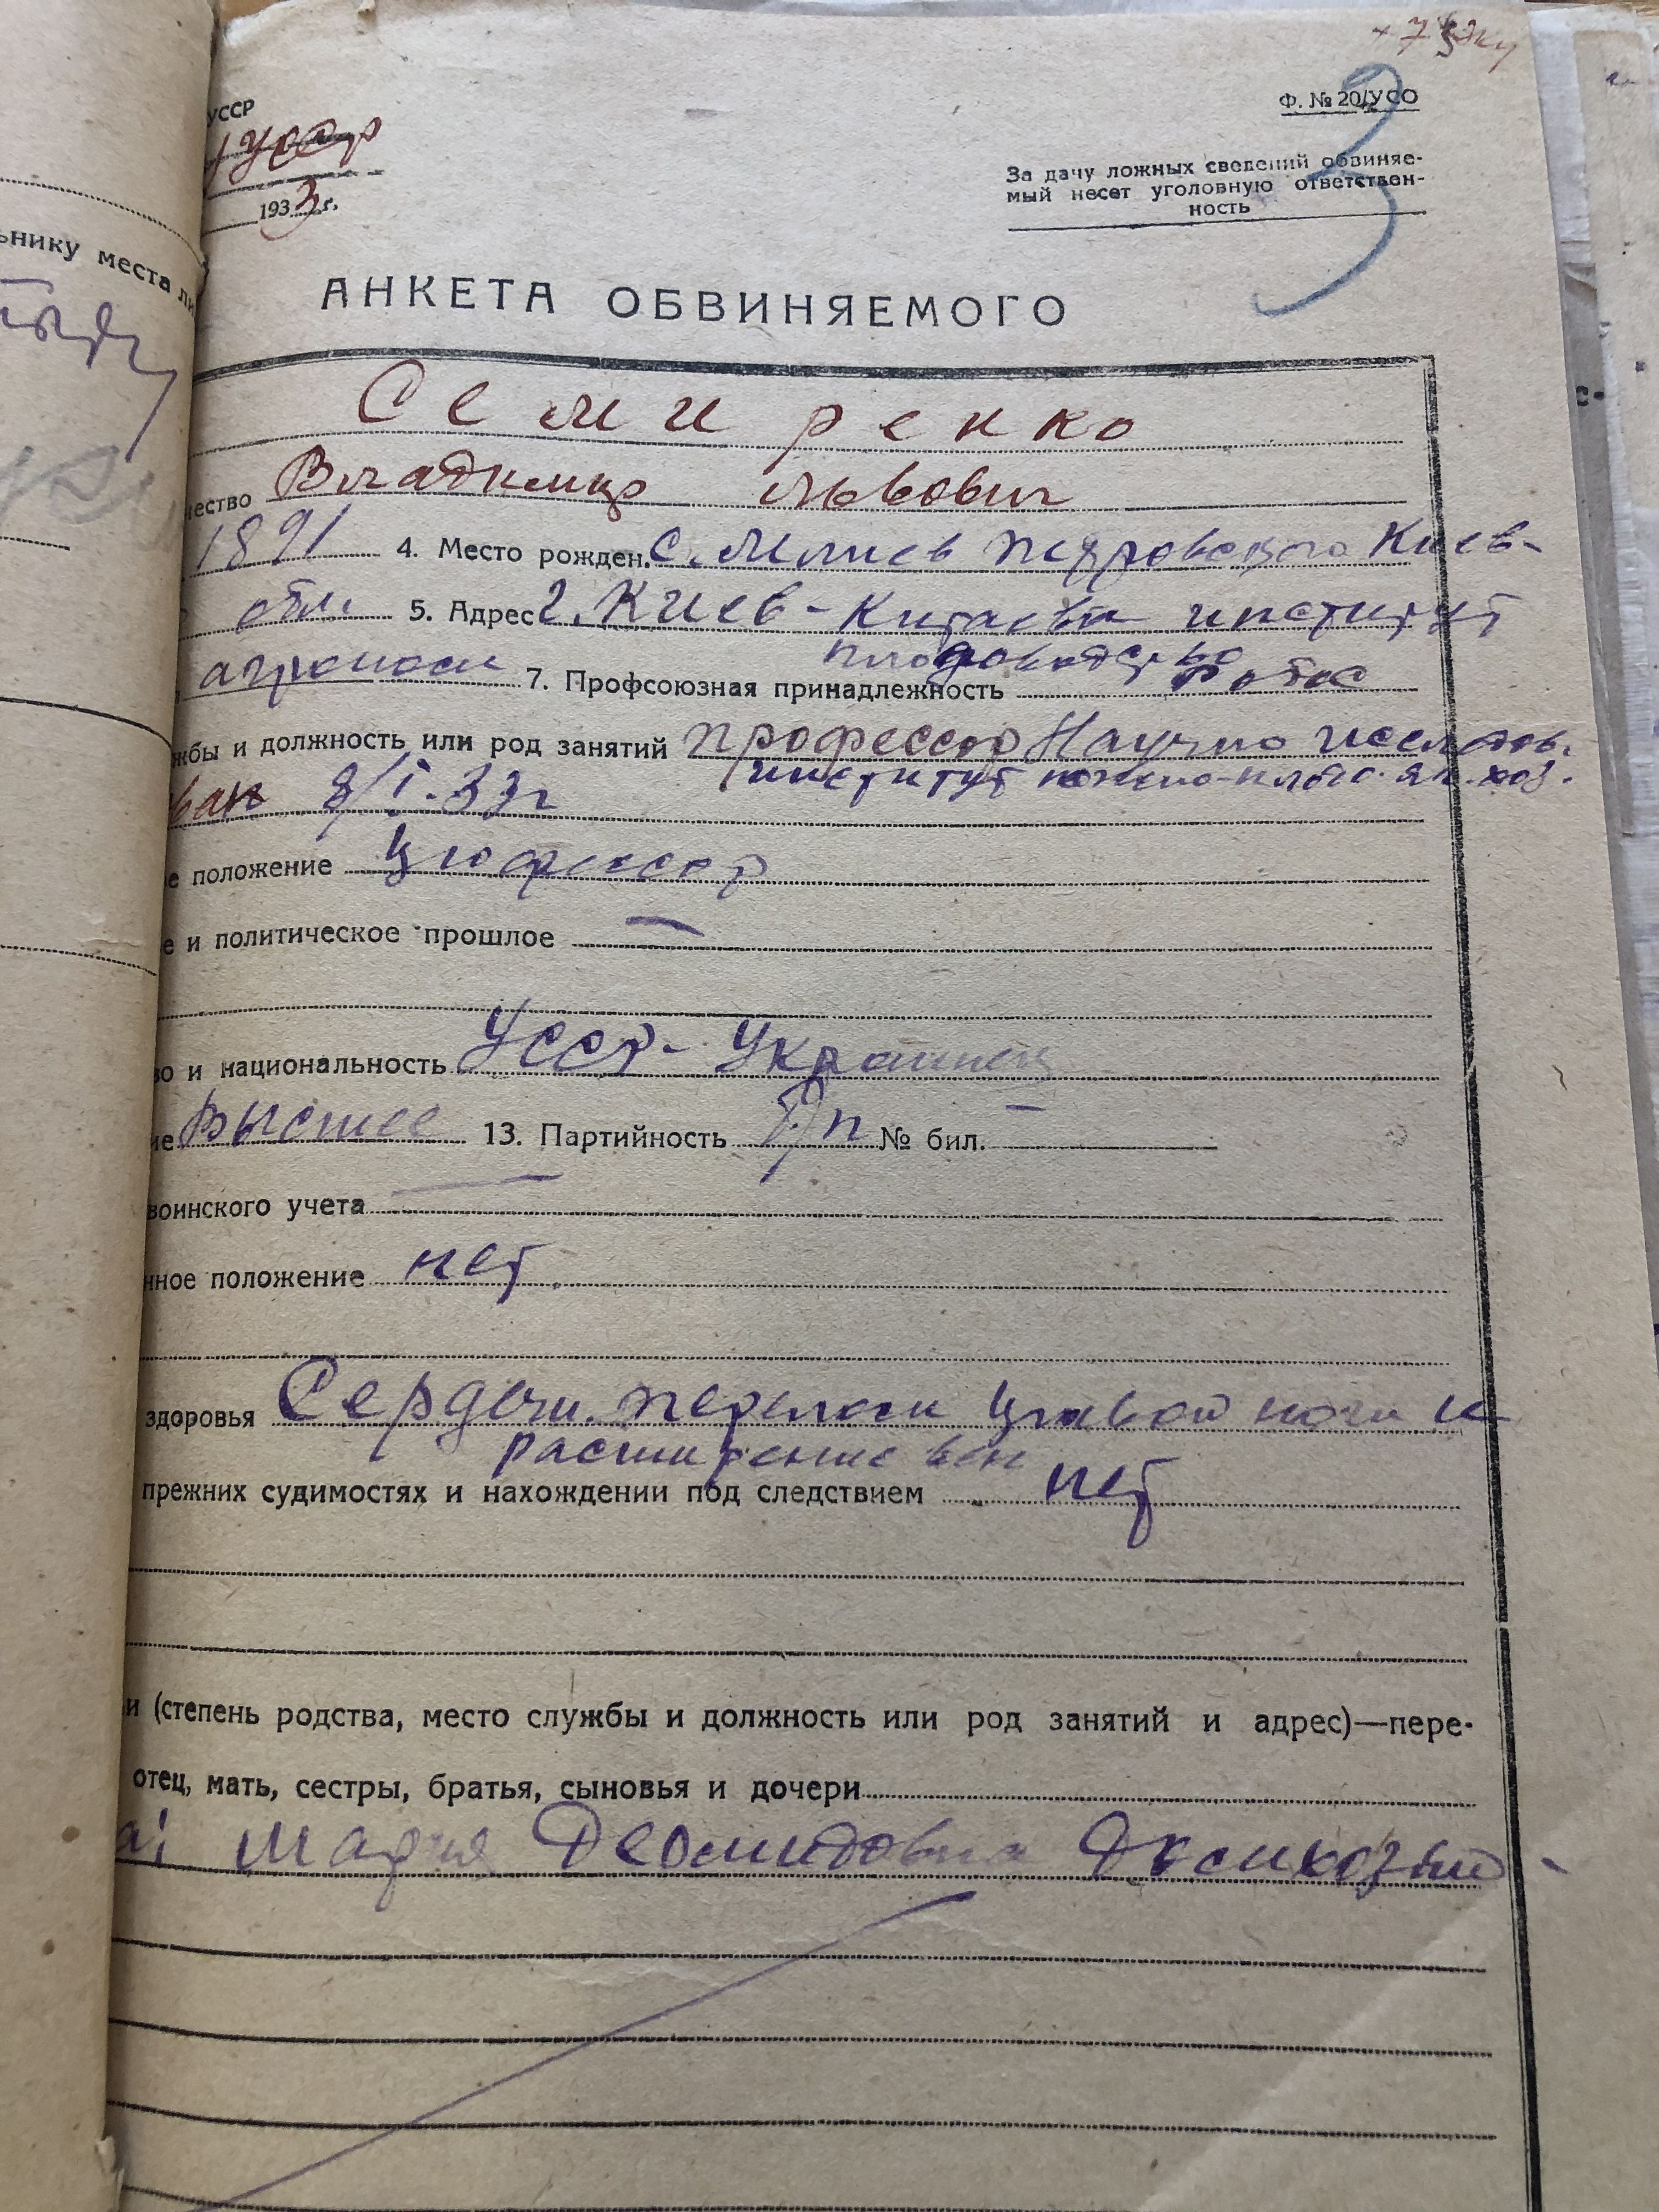 УССР
Ф. № 20/УСО
3
УССР
1933 г.
За дачу ложных сведений обвиняе-
мый несет уголовную ответствен-
ность
ьнику места
АНКЕТА ОБВИНЯЕМОГО
Семиренко
чество Владимир Львович
1891 4. Место рожден. с. Млиев Петровского Киев-
обл. 5. Адрес г. Киев - Китаево институт
плодоводства
агроном 7. Профсоюзная принадлежность
жбы и должность или род занятий профессор Научно исследов.
институт
ван 8/I.33 г
е положение профессор
е и политическое прошлое —
во и национальность УССР - Украинец
ие Высшее 13. Партийность б/п № бил. —
воинского учета —
нное положение нет
здоровья Сердечн. перелом правой ноги и
расширение вен
прежних судимостях и нахождении под следствием нет
и (степень родства, место службы и должность или род занятий и адрес)—пере-
отец, мать, сестры, братья, сыновья и дочери
а: Мария Деомидовна